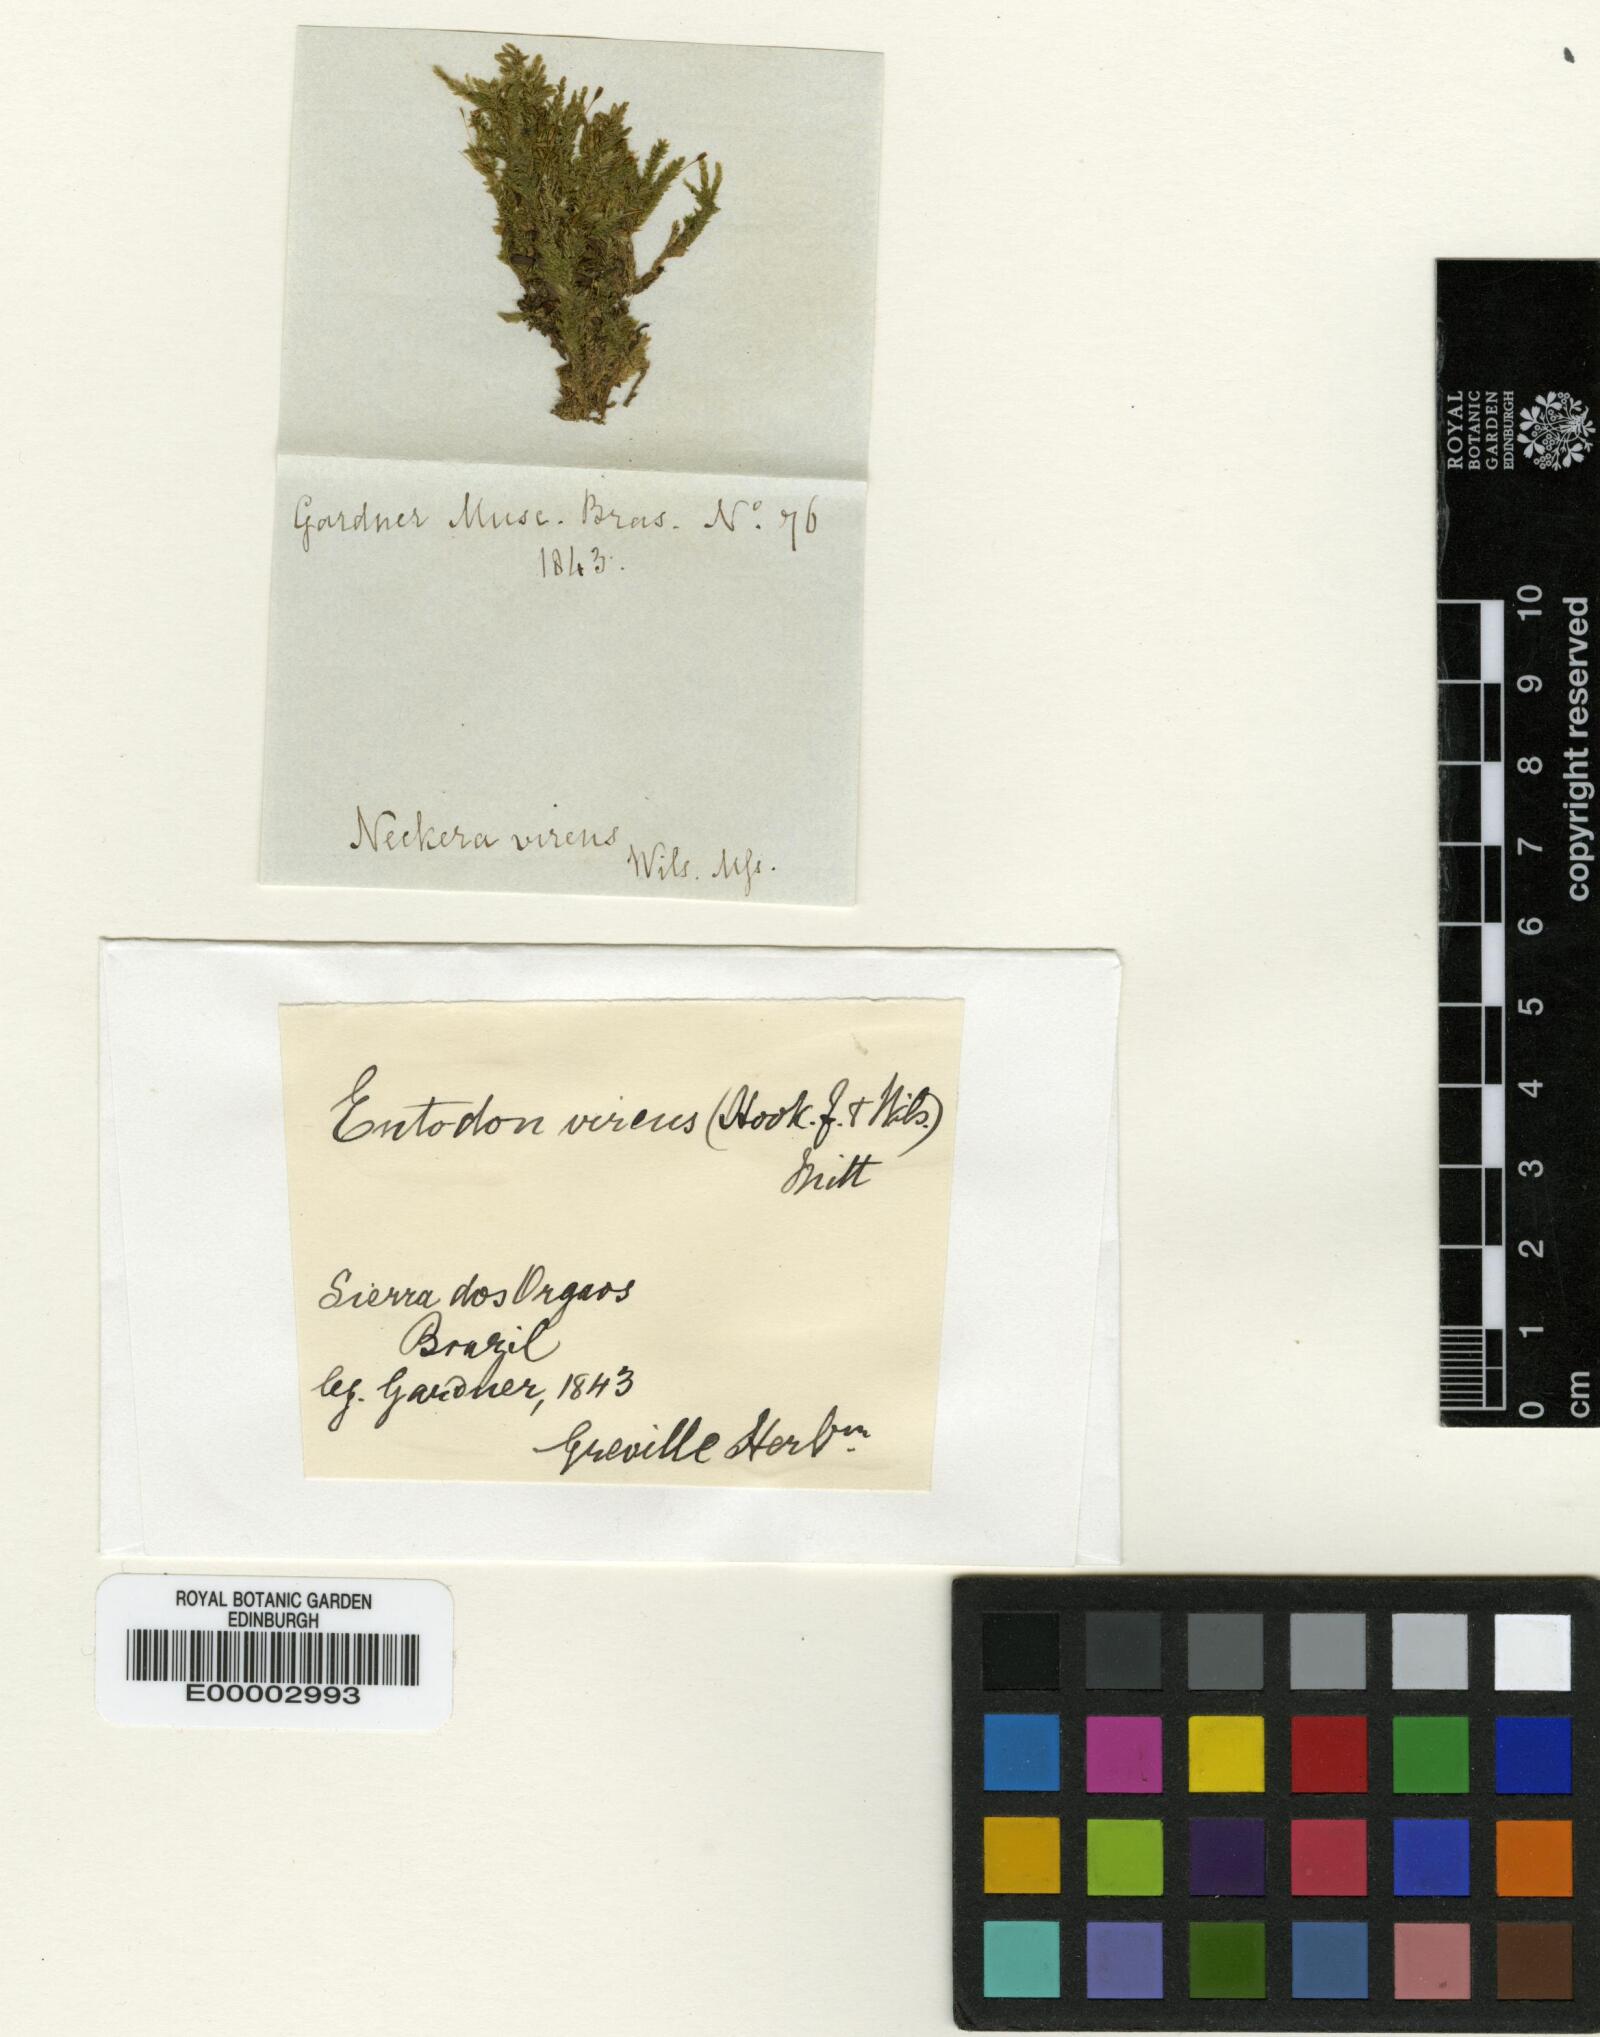 Gardner Musc. Bras. No. 76
1843.
Neckera virens
Wils. Mss.
Entodon virens (Hook. f. & Wils.)
Mitt
Sierra dos Orgaos
Brazil
leg. Gardner, 1843
Greville Herbm.
ROYAL BOTANIC GARDEN
EDINBURGH
E00002993
ROYAL
BOTANIC
GARDEN
EDINBURGH
0 1 2 3 4 5 6 7 8 9 10
cm
copyright reserved